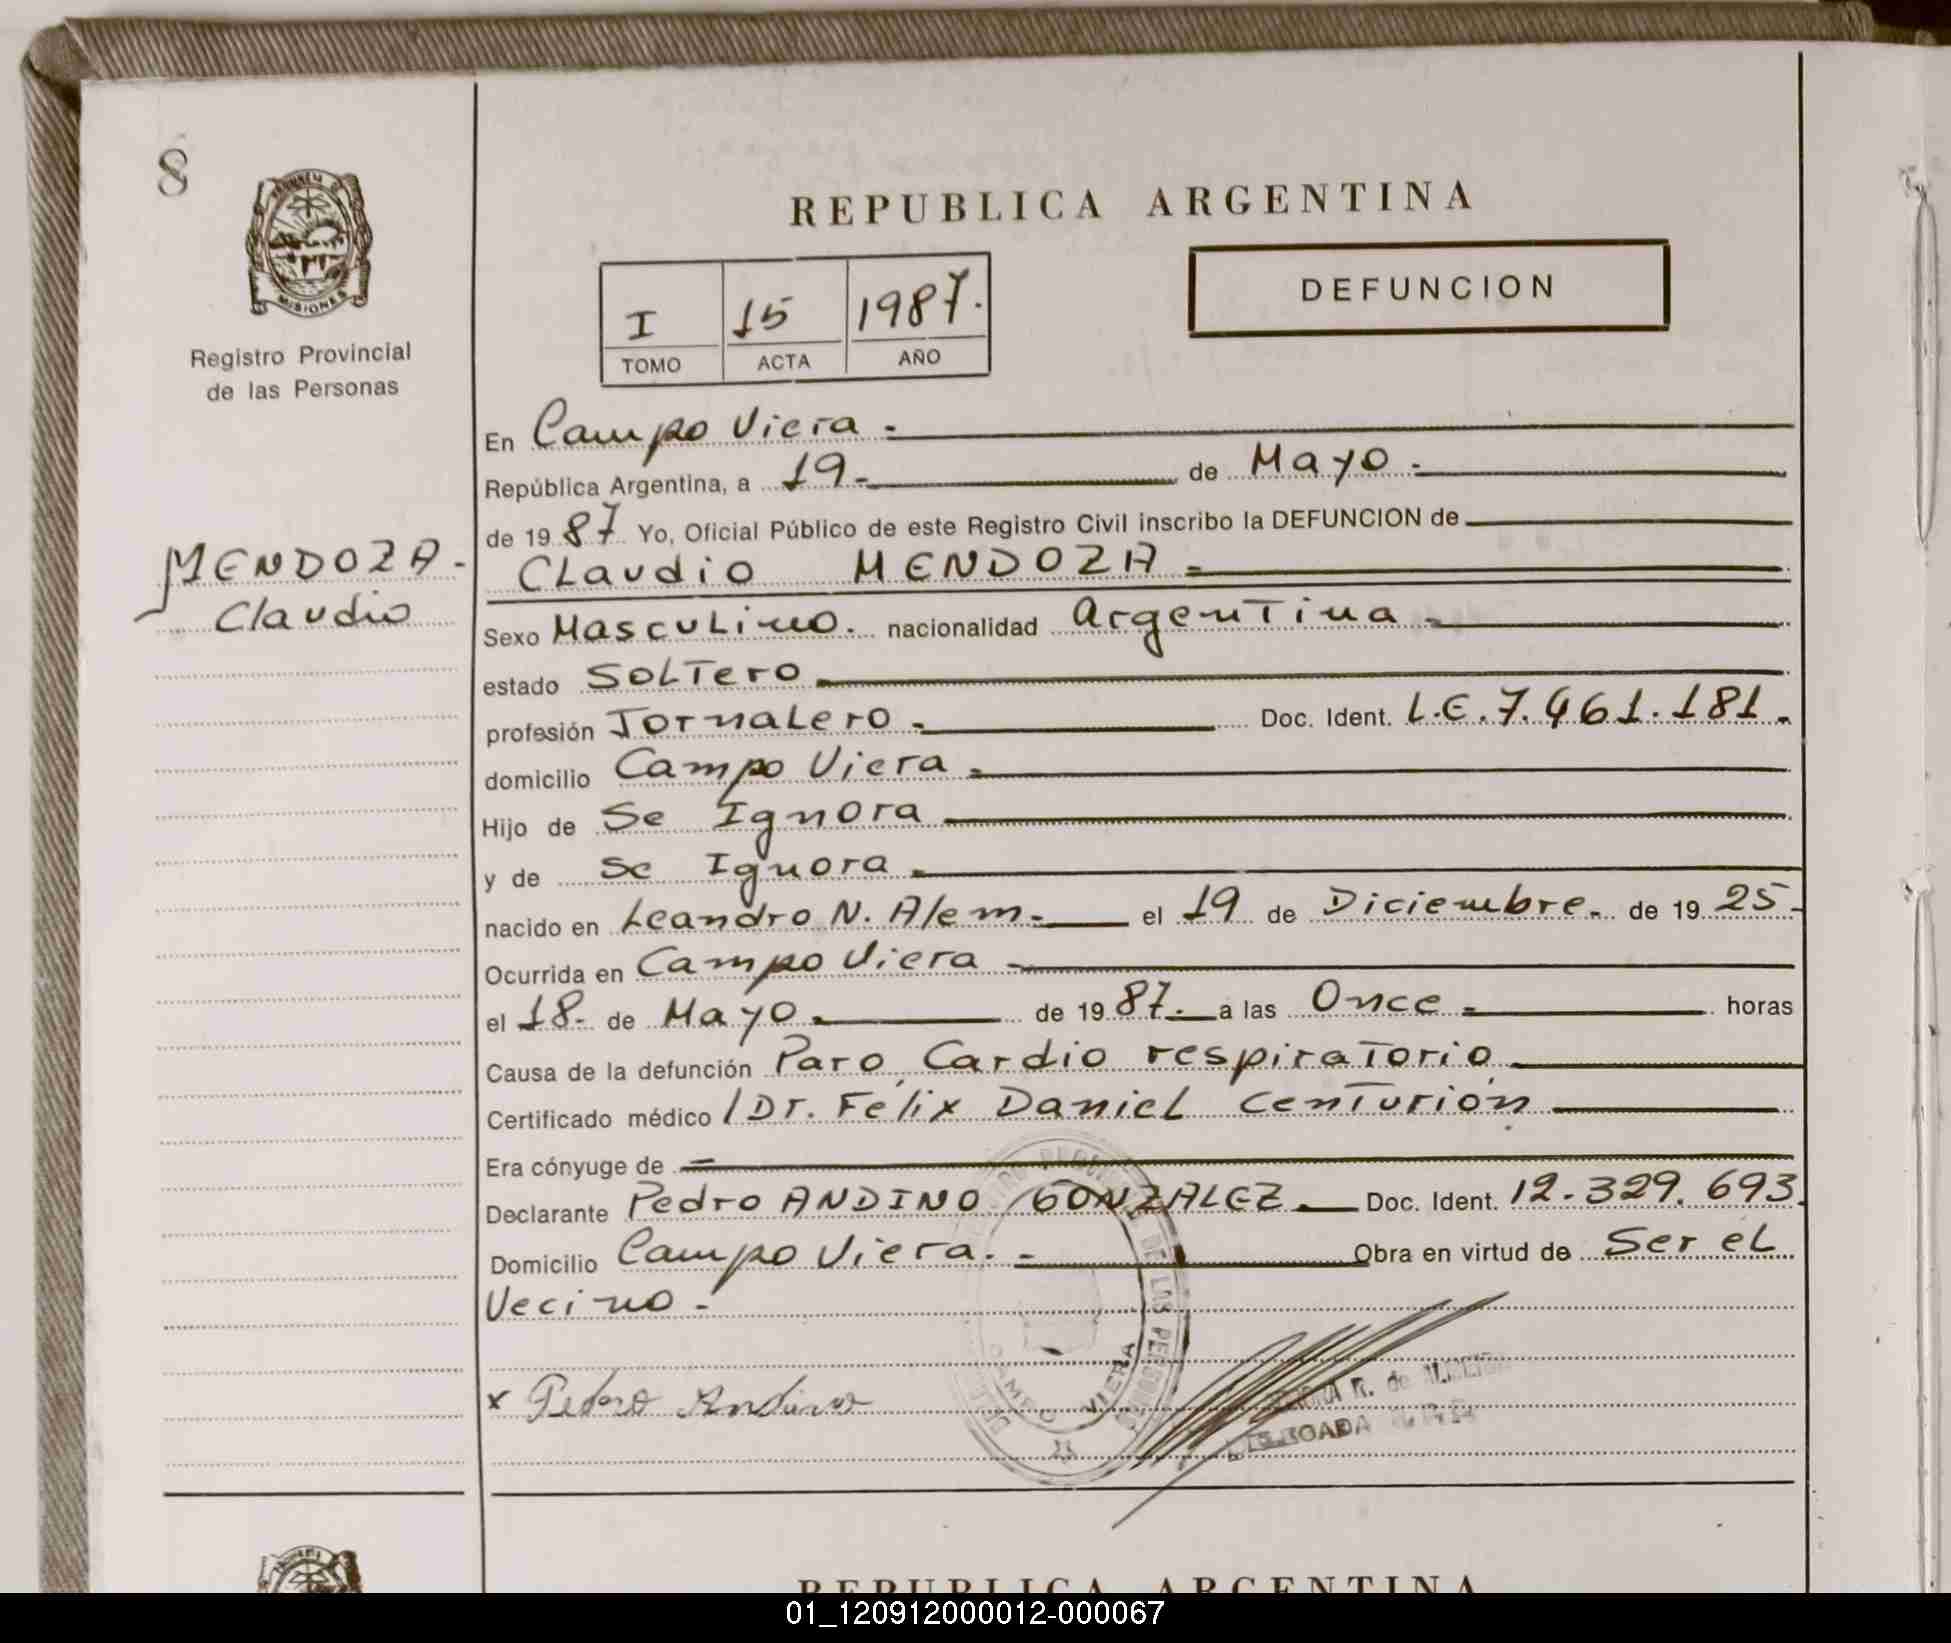 8
PROVINCIA DE
MISIONES
Registro Provincial
de las Personas
MENDOZA.-
Claudio
REPUBLICA ARGENTINA
DEFUNCION
I 15 1987.
TOMO ACTA AÑO
En Campo Viera.-
República Argentina, a 19.- de Mayo.-
de 19 87 Yo, Oficial Público de este Registro Civil inscribo la DEFUNCION de
Claudio MENDOZA.-
Sexo Masculino. nacionalidad Argentina.-
estado Soltero
profesión Jornalero.- Doc. Ident. L.E. 7.461.181.-
domicilio Campo Viera.-
Hijo de Se Ignora
y de Se Ignora.
nacido en Leandro N. Alem.- el 19 de Diciembre.- de 19 25.-
Ocurrida en Campo Viera
el 18.- de Mayo.- de 19 87.- a las Once.- horas
Causa de la defunción Paro Cardio respiratorio
Certificado médico / Dr. Félix Daniel Centurión
Era cónyuge de
Declarante Pedro ANDINO / GONZALEZ.- Doc. Ident. 12.329.693.
Domicilio Campo Viera.- Obra en virtud de Ser el
Vecino.-
DE LAS PERSONAS
CAMPO VIERA
x Pedro Andino
R. de
DELEGADA
REPUBLICA ARGENTINA
01_120912000012-000067